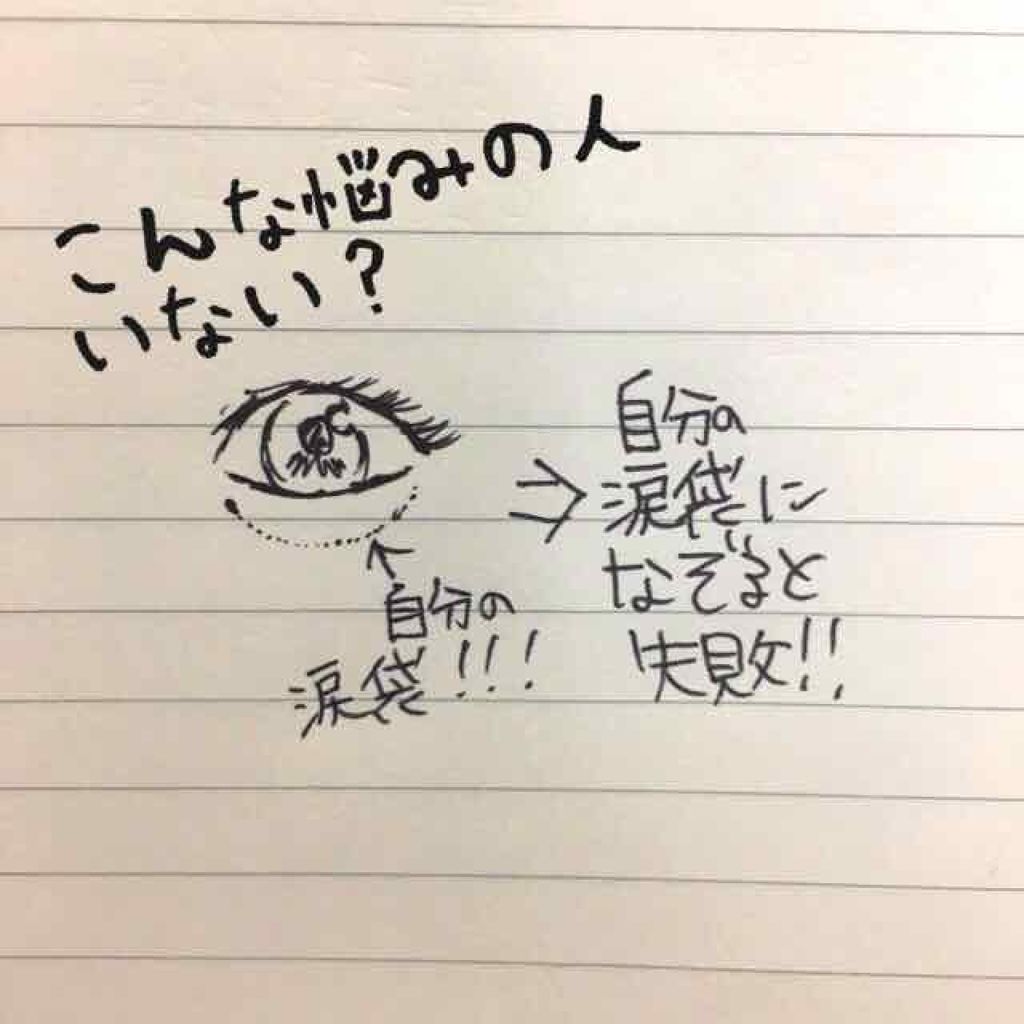 こんな悩みの人
いない?
自分の
涙袋に
なぞると
失敗!!
自分の
涙袋!!!